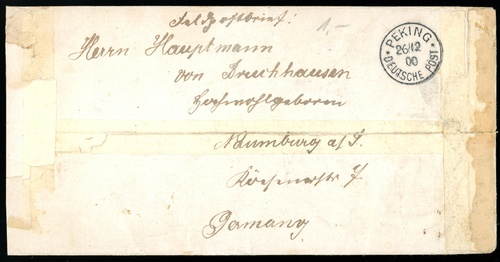 Feldpostbrief!
1,-
Herrn Hauptmann
von Bruchhausen
Hochwohlgeboren
Naumburg a/S.
Kösenerstr
Germany
* PEKING *
26/12
00
DEUTSCHE POST